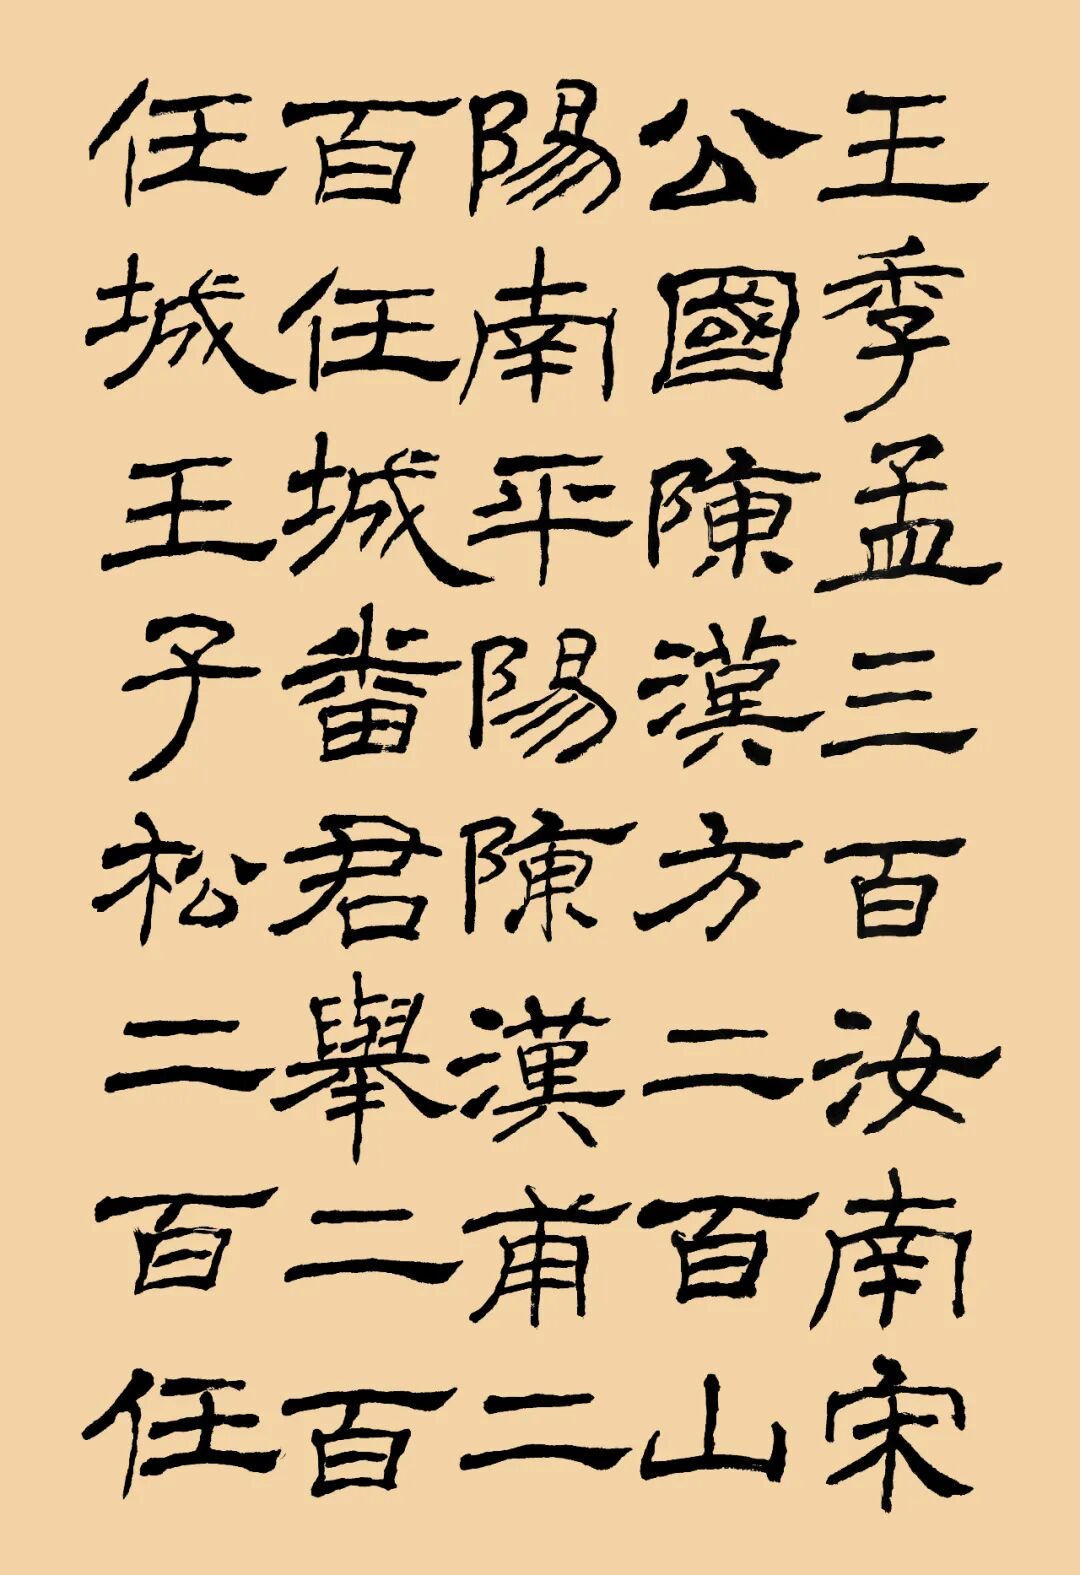 王季孟三百汝南宋
公國陳漢方二百山
陽南平陽陳漢甫二
百任城番君舉二百
任城王子松二百任